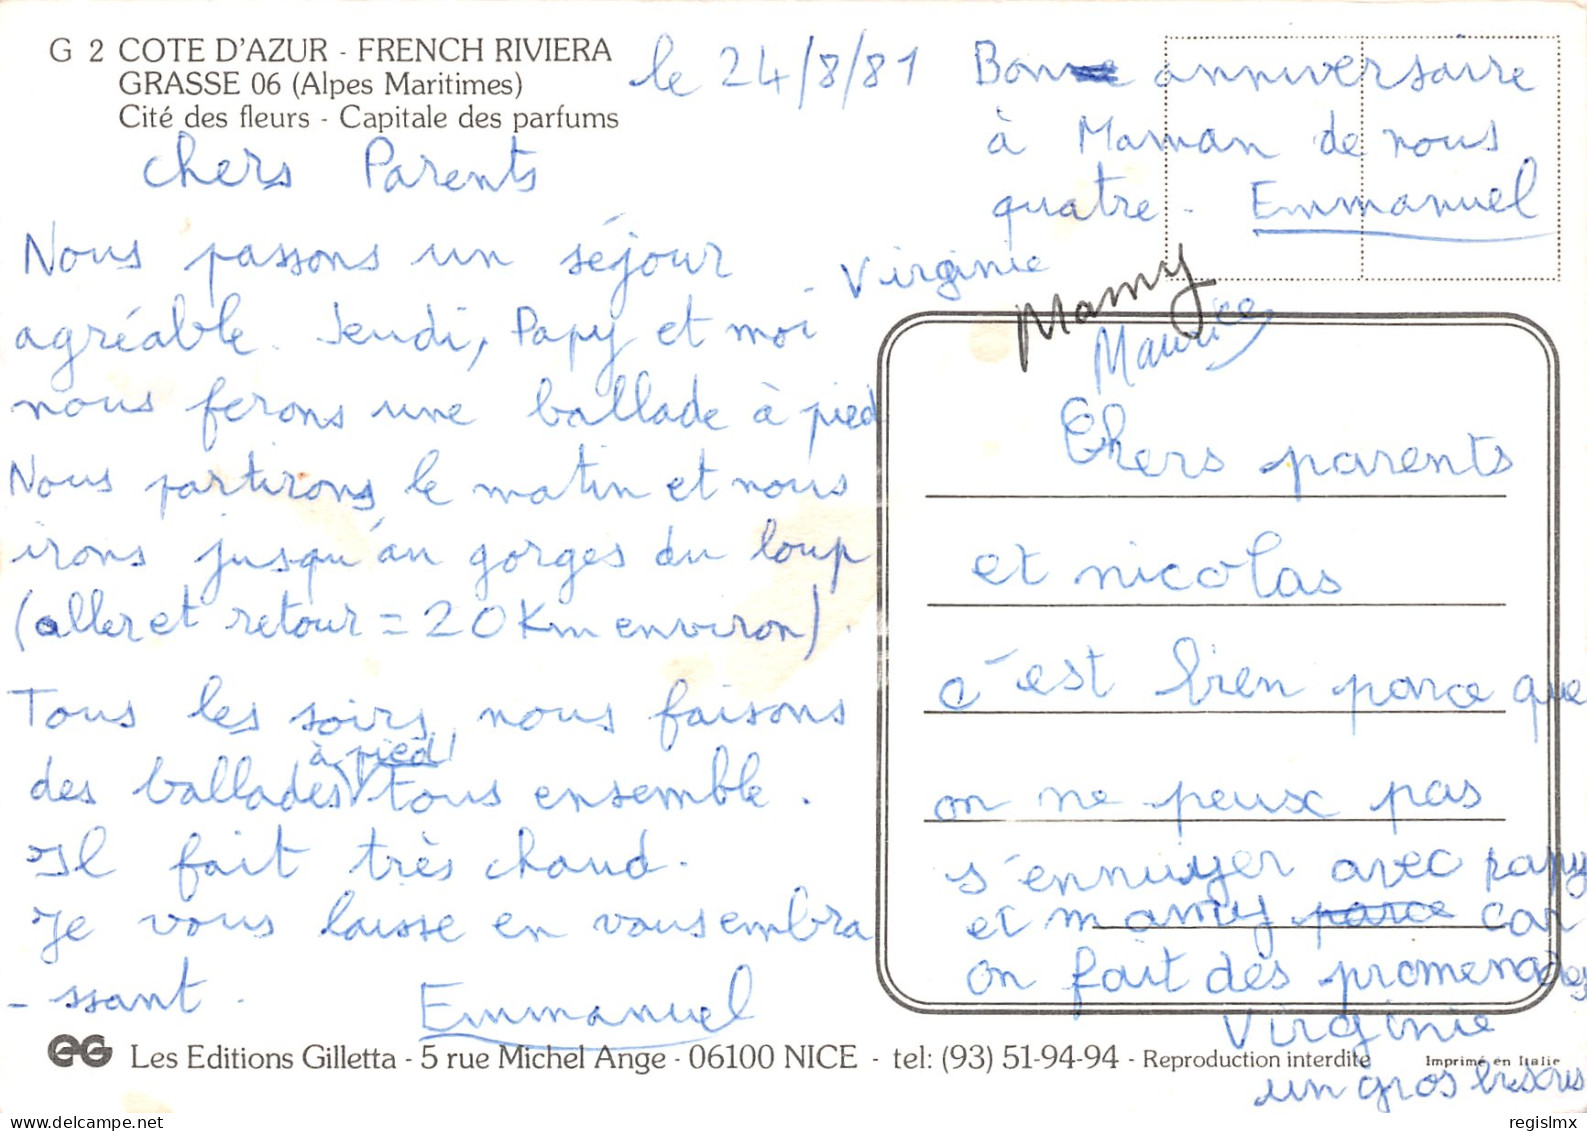 G 2 COTE D'AZUR - FRENCH RIVIERA
GRASSE 06 (Alpes Maritimes)
Cité des fleurs - Capitale des parfums
le 24/8/81
chers Parents
Nous passons un séjour
agréable. Jeudi, Papy et moi
nous ferons une ballade à pied
Nous partirons le matin et nous
irons jusqu'au gorges du loup
(aller et retour = 20 Km environ).
Tous les soirs, nous faisons
à pied
des ballades tous ensemble.
Il fait très chaud.
Je vous laisse en vous embra
-ssant.
Emmanuel
Bonne anniversaire
à Maman de nous
quatre. Emmanuel
- Virginie
Mamy
Maurice
Chers parents
et nicolas
c'est bien parce que
on ne peux pas
s'ennuyer avec papy
et mamy parce car
on fait des promenades
Virginie
un gros bisous
EG Les Editions Gilletta - 5 rue Michel Ange - 06100 NICE - tel: (93) 51-94-94 - Reproduction interdite
Imprimé en Italie
regislmx